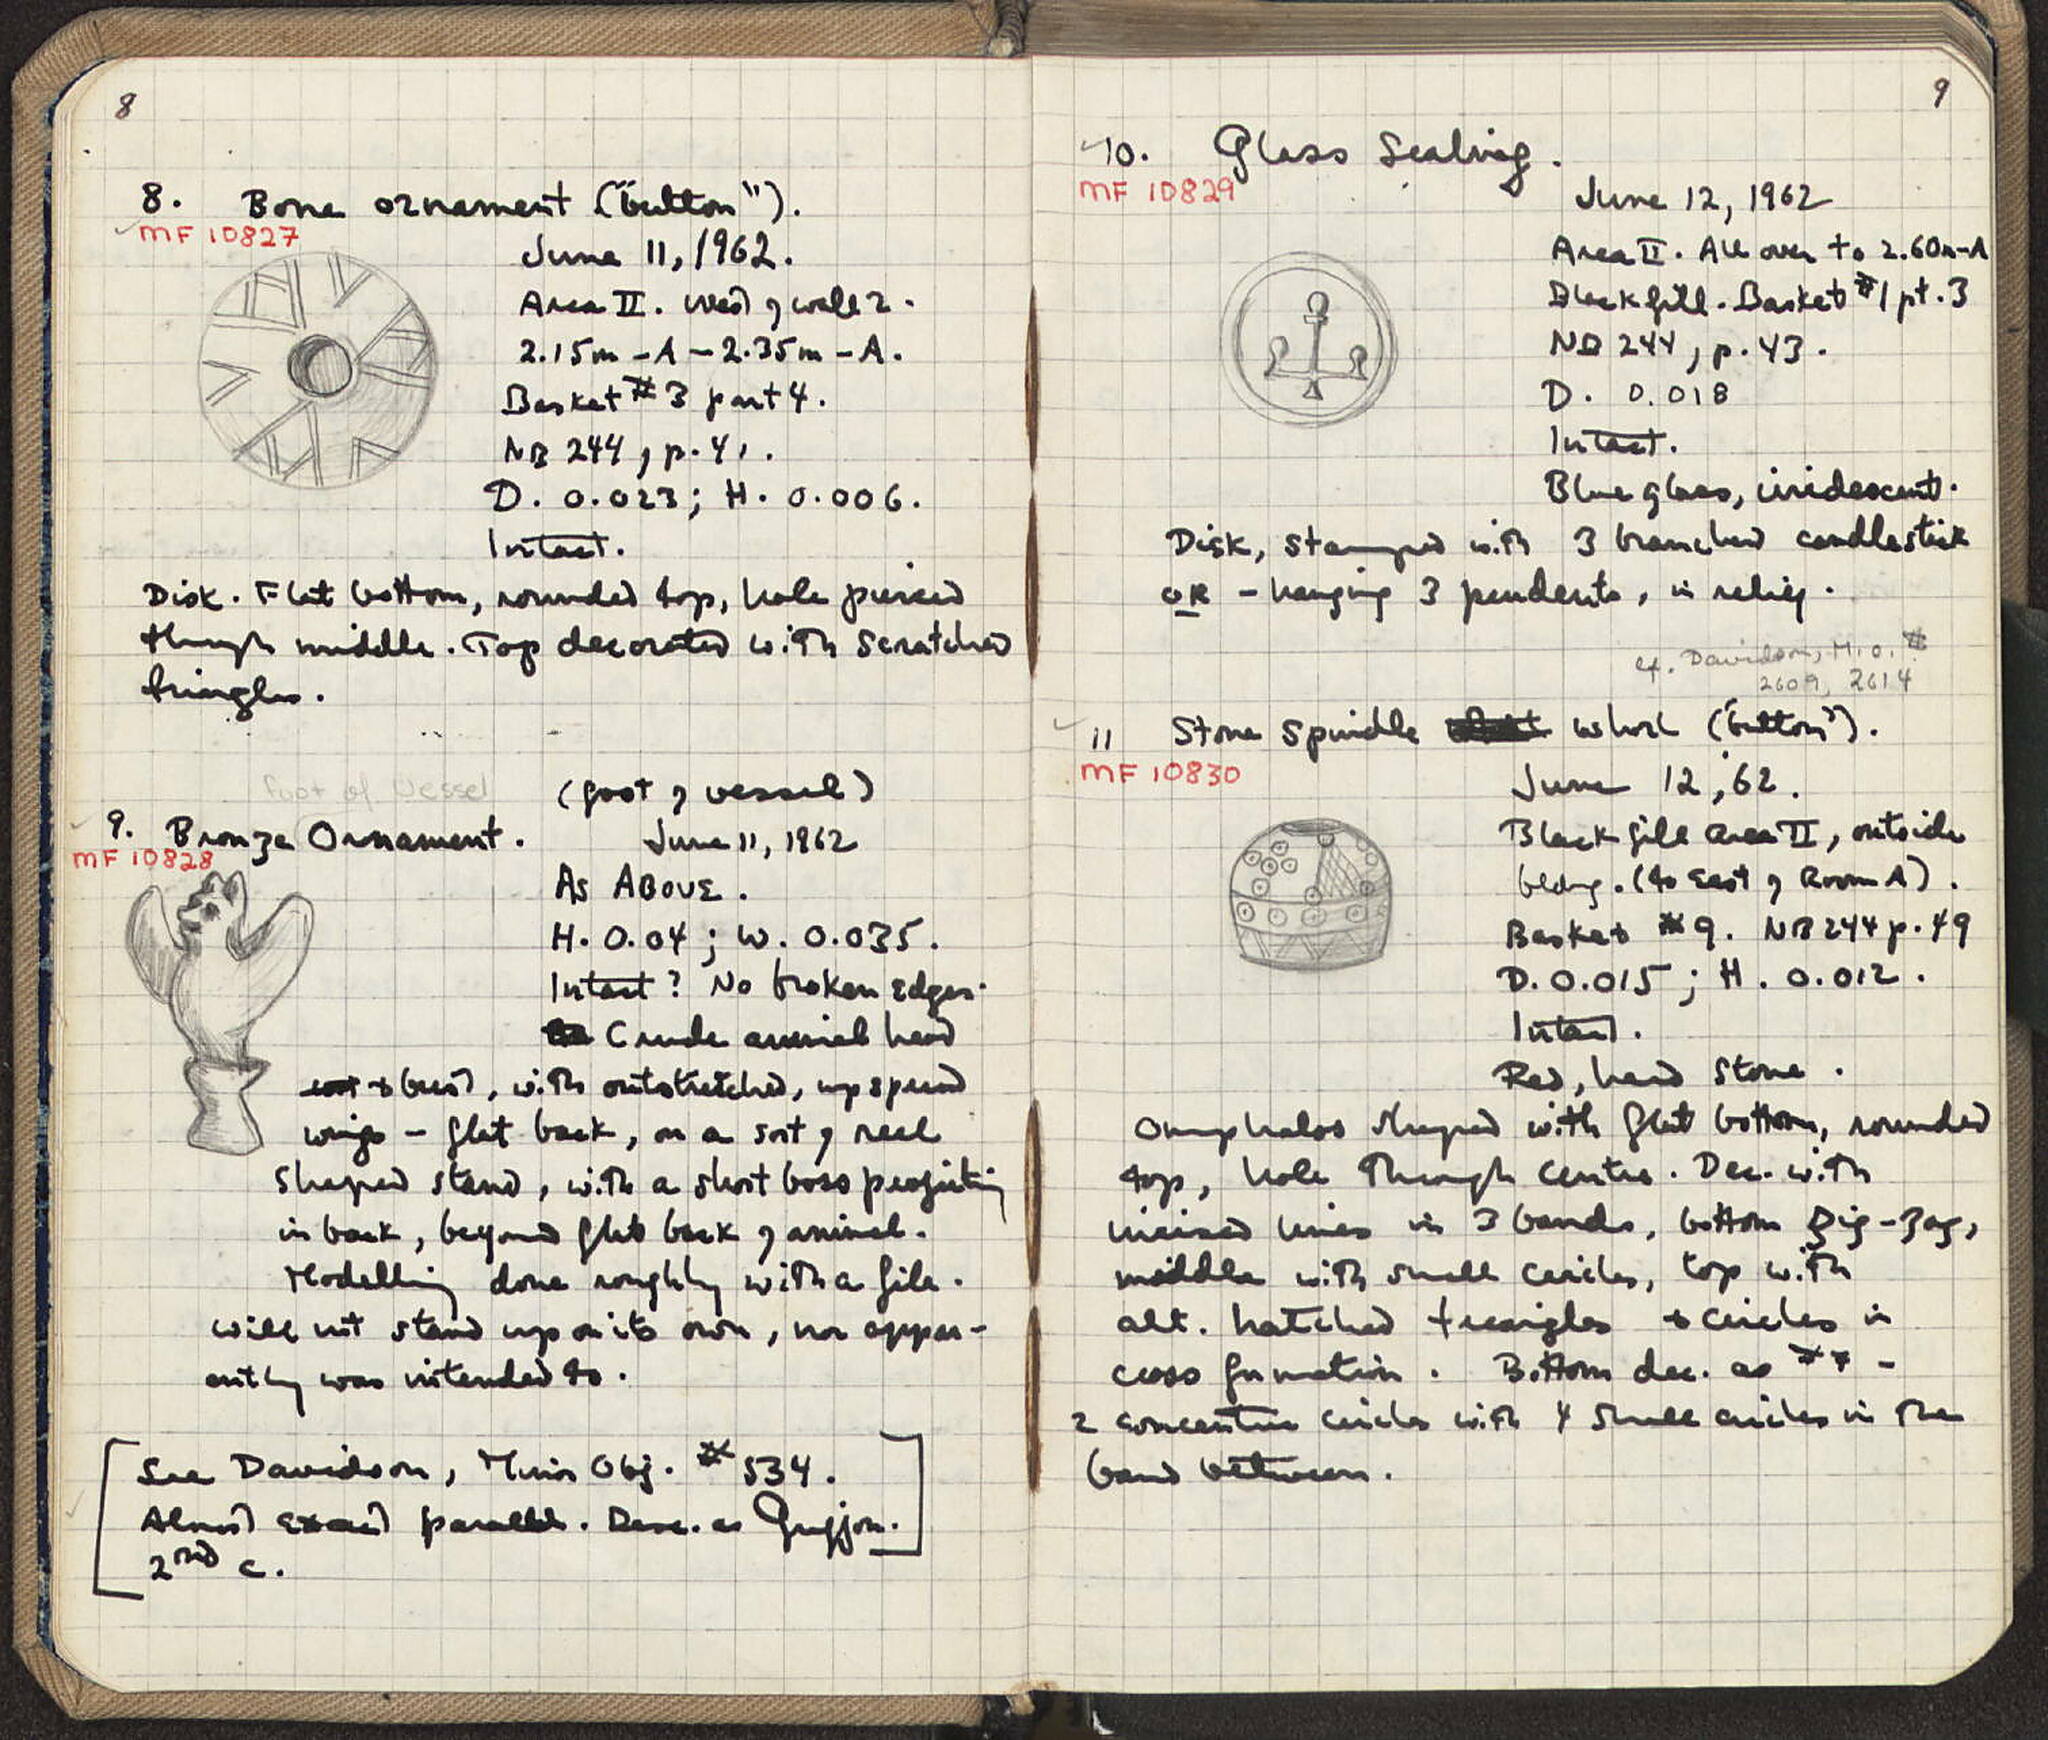 8
8. Bone ornament ("button").
MF 10827
June 11, 1962.
Area II. West of wall 2.
2.15m - A - 2.35m - A.
Basket #3 part 4.
NB 244, p. 41.
D. 0.023; H. 0.006.
Intact.
Disk. Flat bottom, rounded top, hole pierced
through middle. Top decorated with scratched
triangles.
foot of vessel
(foot of vessel)
9. Bronze Ornament.
MF 10828
June 11, 1962
As Above.
H. 0.04; W. 0.035.
Intact? No broken edges.
Crude animal head
+ bust, with outstretched, upspread
wings - flat back, on a sort of reel
shaped stand, with a short boss projecting
in back, beyond flat back of animal.
Modelling done roughly with a file.
Will not stand up on its own, nor appar-
ently was intended to.
[See Davidson, Minor Obj. #534.
Almost exact parallel. Desc. as Gryffon.
2nd c.]
9
10. Glass Sealing.
MF 10829
June 12, 1962
Area II. All over to 2.60m-A
Black fill. Basket #1 pt. 3
NB 244, p. 43.
D. 0.018
Intact.
Blue glass, iridescent.
Disk, stamped with 3 branched candlestick
OR - hanging 3 pendents, in relief.
cf. Davidson, M.O. #
2609, 2614
11 Stone Spindle whorl ("button").
MF 10830
June 12, '62.
Black fill Area II, outside
bldng. (to East of Room A).
Basket #9. NB 244 p. 49
D. 0.015; H. 0.012.
Intact.
Red, hard stone.
Omphalos shaped with flat bottom, rounded
top, hole through centre. Dec. with
incised lines in 3 bands, bottom zig-zag,
middle with small circles, top with
alt. hatched triangles + circles in
cross formation. Bottom dec. as #7 -
2 concentric circles with 4 small circles in the
band between.